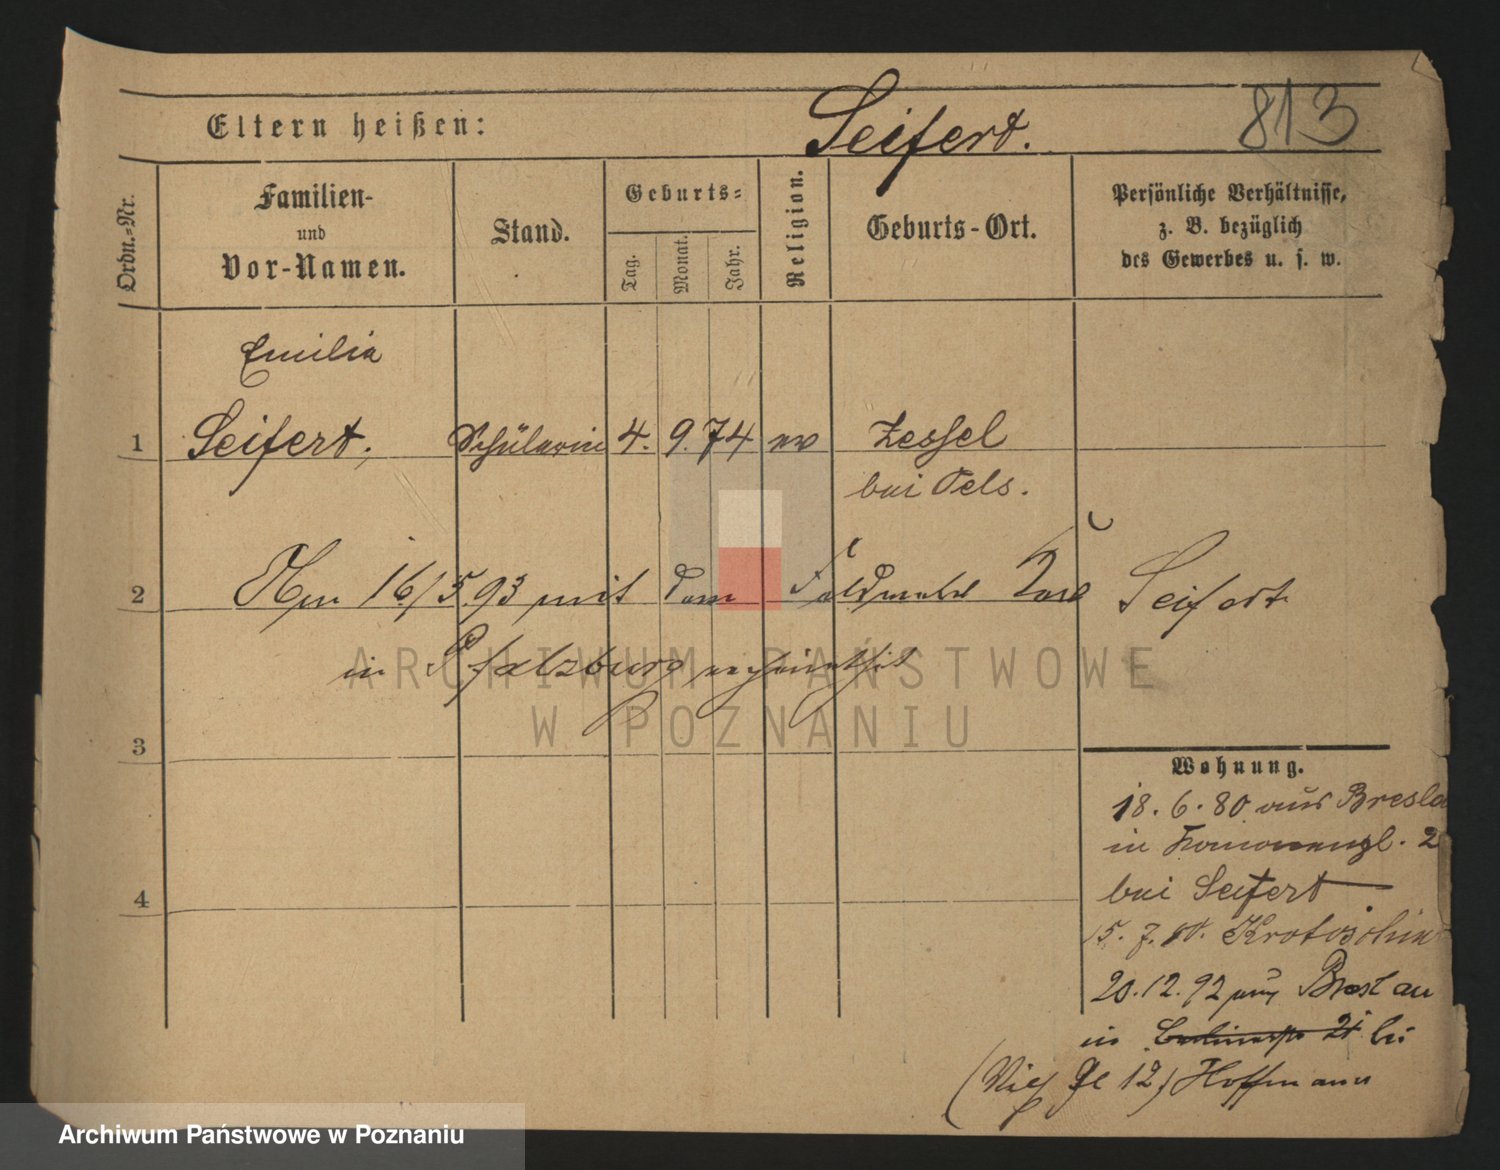 813
Eltern heißen: Seifert.
Ordn.-Nr.
Familien-
und
Vor-Namen.
Stand.
Geburts-
Tag.
Monat.
Jahr.
Religion.
Geburts-Ort.
Persönliche Verhältnisse,
z. B. bezüglich
des Gewerbes u. s. w.
Emilia
1 Seifert, Schülerin 4. 9. 74 ev Zessel
bei Oels.
2 Am 16/5.93 mit dem Karl Seifert
in Pfalzburg verheirathet
ARCHIWUM PAŃSTWOWE
W POZNANIU
3
Wohnung.
18. 6. 80 aus Bresla
in 2
bei Seifert
4
15. 7. 80. Krotoschin
20.12.92 aus Breslau
in 21 bei
12) Hoffmann
Archiwum Państwowe w Poznaniu